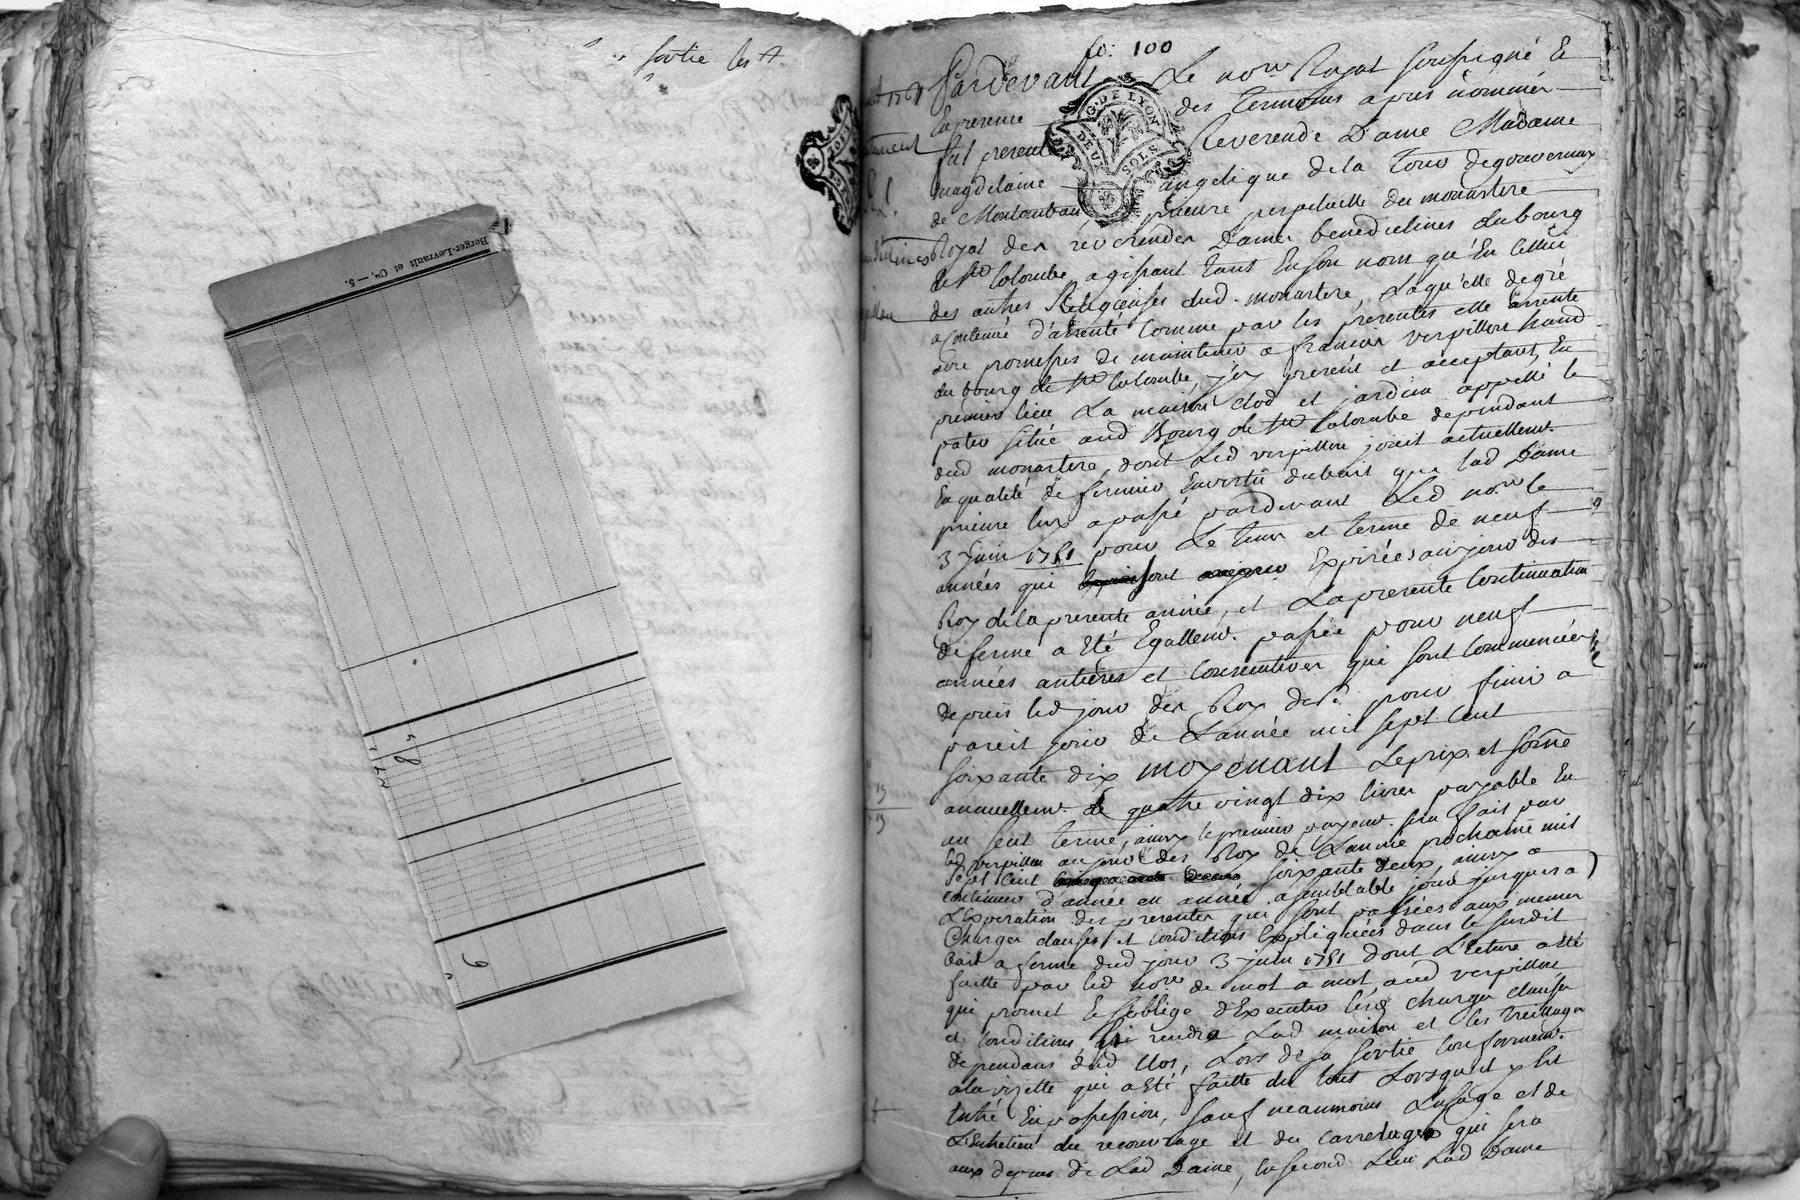 sortie les
Berger-Levrault et Cie. — 5.
48
9
fo: 100
Pardevant Le nore Royal soussigné &
En presence des temoins apres nommés
fut presente Reverende Dame Madame
magdelaine angelique de la Tour de gouvernay
de Montauban, prieure perpetuelle du monastere
Royal des réverendes Dames benedictines du bourg
de Ste Colombe, agissant tant En son nom qu'En Celluy
des autres Religieuses dud. monastere, Laqu'elle de gré
a continué d'arrenté Comme par les presentes elle arrente
avec promesses de maintenir a françois verpilleu
du bourg de Ste Colombe, jcy present et acceptant, En
premier lieu La maison clod et jardin appellé le
situé aud Bourg de Ste Colombe dependant
dud monastere, dont Led verpilleu jouit actuellemt.
En qualité de fermier En vertu du bait que lad Dame
prieure luy a passé pardevant Led nore le
3 Juin 1751 pour Le tems et terme de neuf
années qui sont Expirées au jour des
Roy de la presente année, et La presente Continuation
de ferme a Eté Egallemt. passée pour neuf
années antieres et Consecutives qui sont Commencées
depuis led jour des Roy der. pour finir a
pareit jour de L'année mil sept Cent
soixante dix moyenant Le prix et some
annuellemt de quatre vingt dix livres payable En
un seul terme, ainsy le premier payemt. sera fait par
led verpilleu au jour des Roy de L'année prochaine mil
sept Cent soixante deux, ainsy a
continuer d'année en année a semblable jour jusques a
L'Experation des presentes qui sont passées aux memes
Charges clauses et conditions Expliquées dans le susdit
bait a ferme dud jour 3 juin 1751 dont L'ecture a eté
faitte par led nore de mot a mot, aud verpilleu
qui promet & s'oblige d'Executer lesd charges clauses
et conditions, de rendre Lad maison et les treillages
dependans dud Clos, Lors de sa sortie conformemt.
a la vizitte qui a eté faitte du tout Lorsquil y fut
Entré En possession, sauf neaumoins L'usage et de
L'Entretient du recouvrage et du Carrelage qui sera
aux depens de Lad Dame, En second Lieu Lad Dame